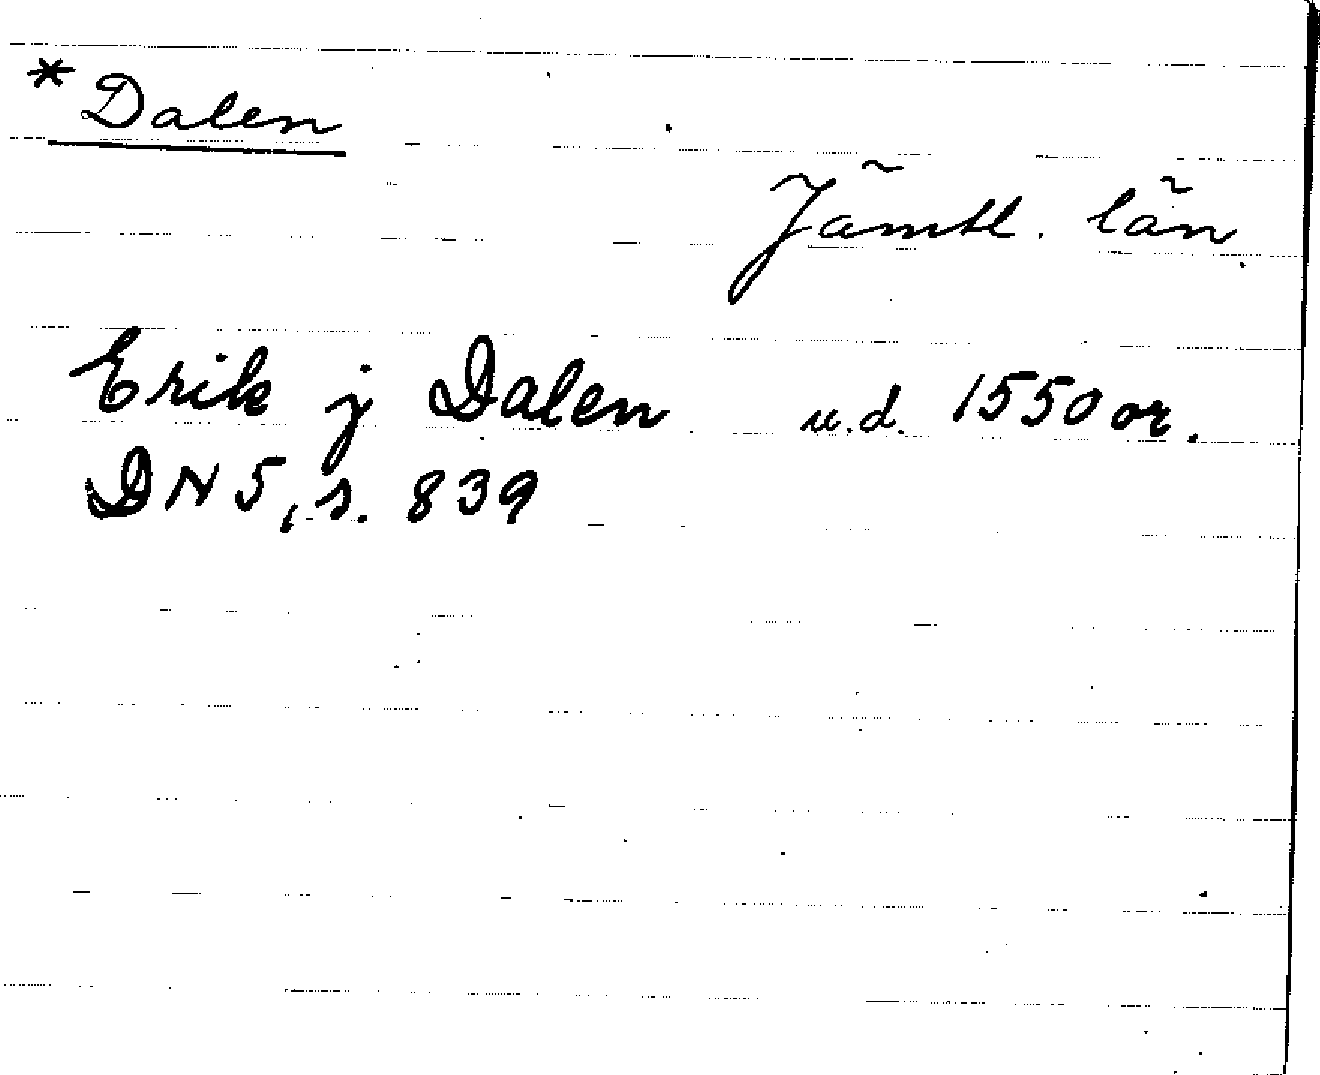 *Dalen
Jämtl. län
Erik j Dalen u.d. 1550 or.
DN 5, s. 839